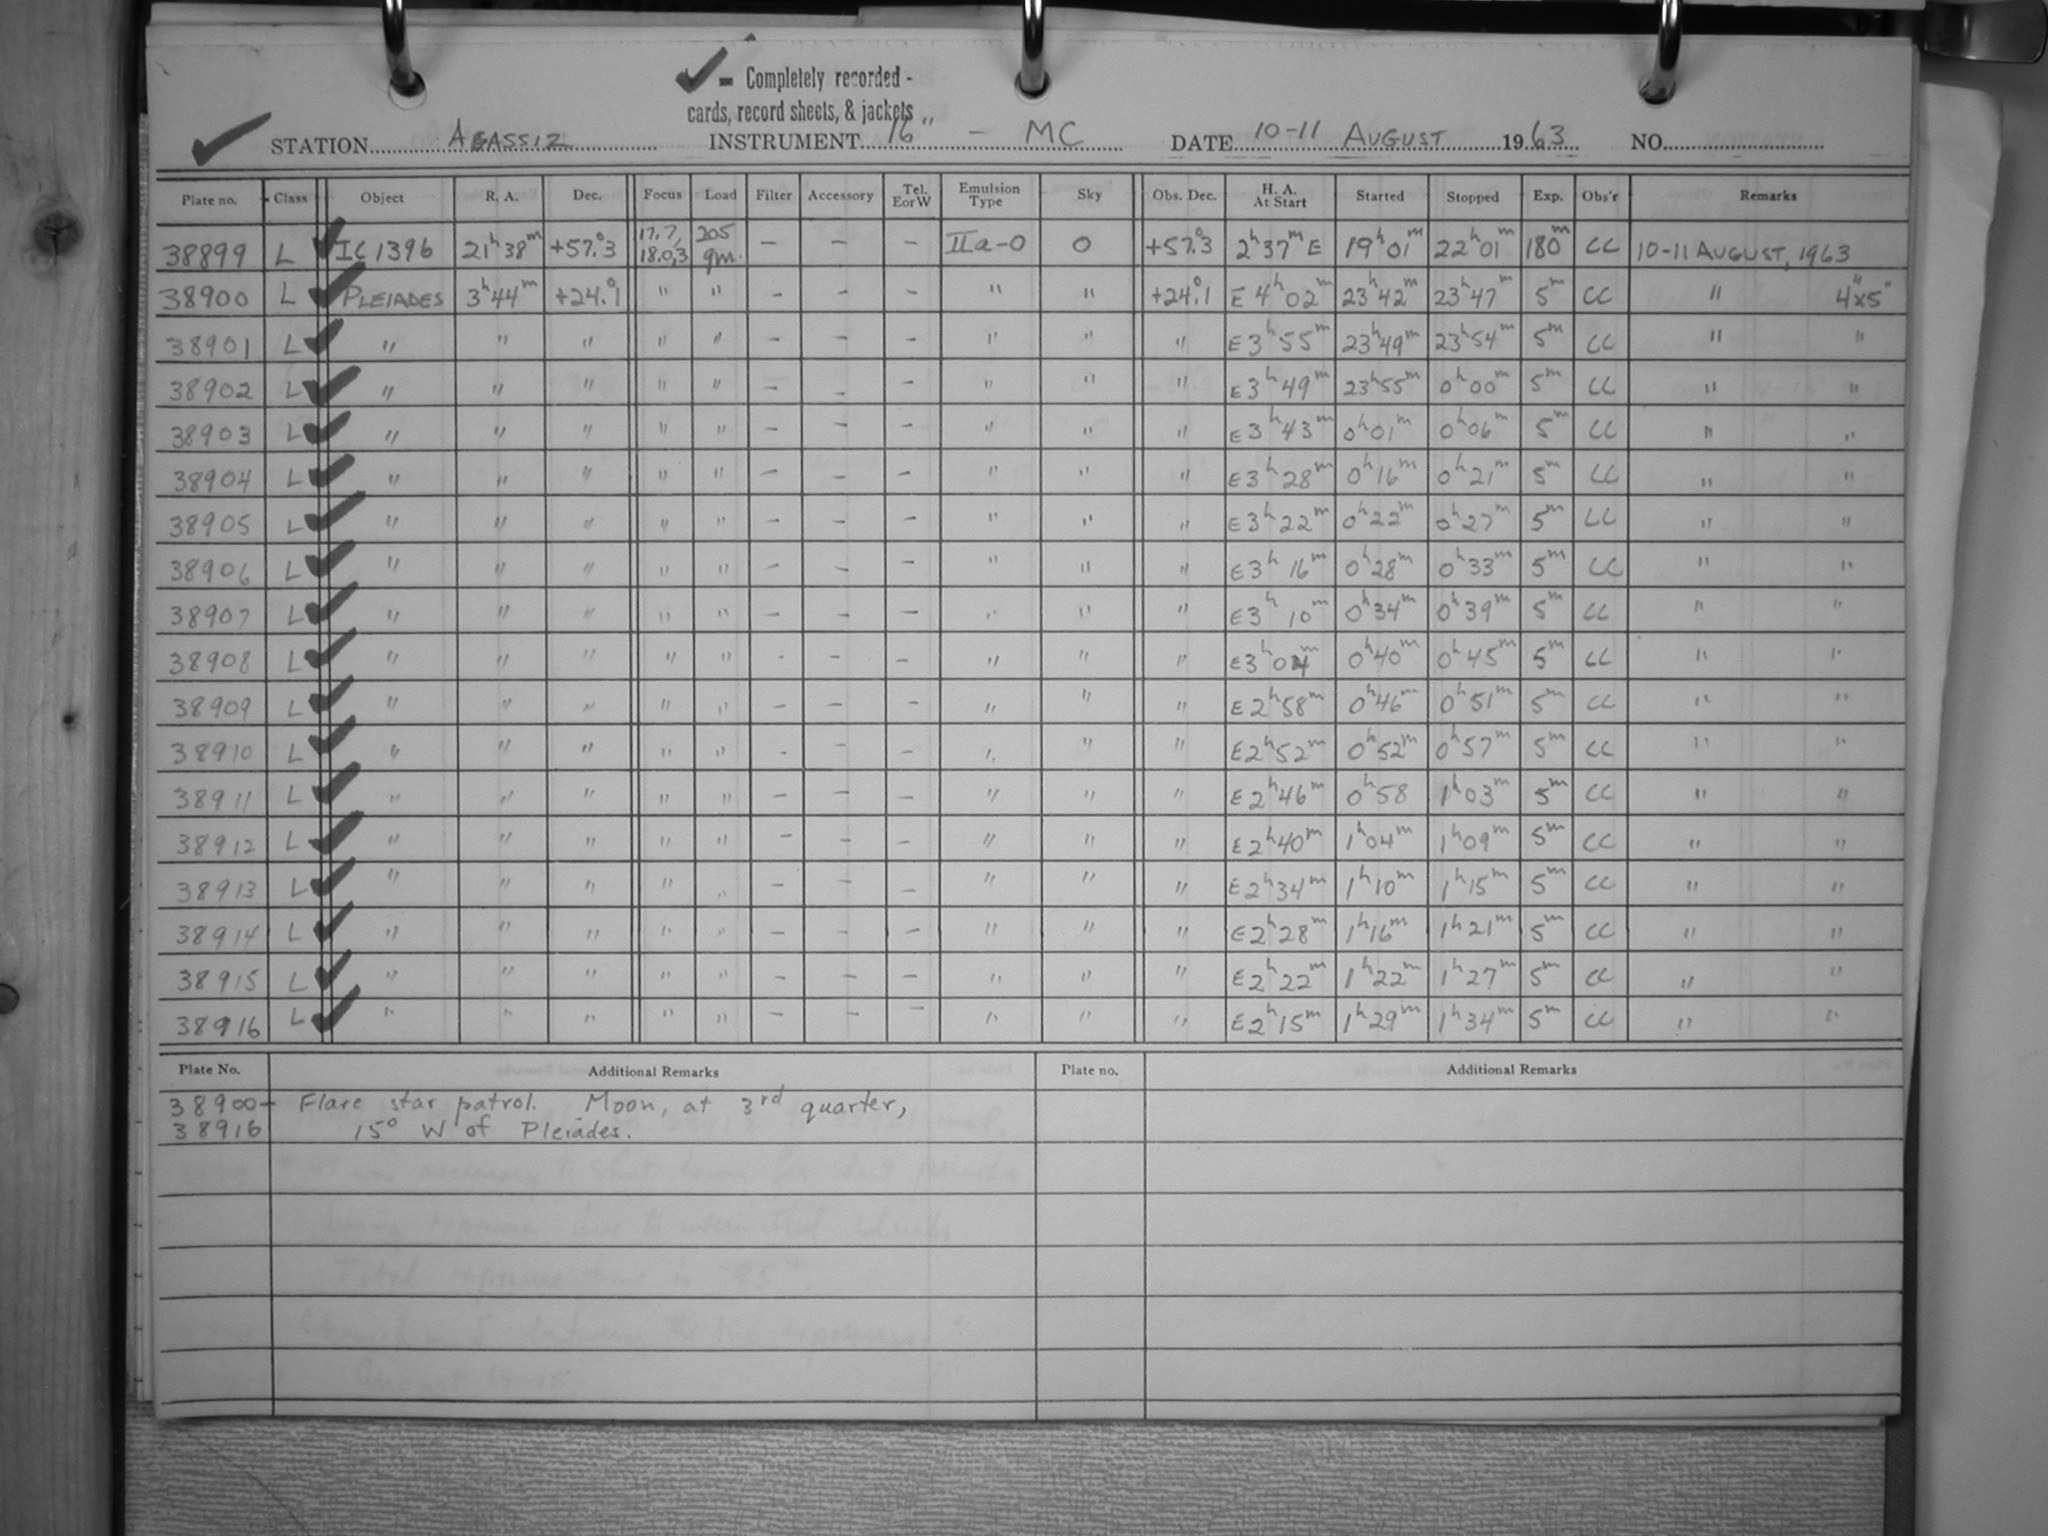 ✓ = Completely recorded -
cards, record sheets, & jackets
STATION AGASSIZ INSTRUMENT 16" - MC DATE 10-11 AUGUST 1963 NO.
Plate no. Class Object R. A. Dec. Focus Load Filter Accessory Tel. E or W Emulsion Type Sky Obs. Dec. H. A. At Start Started Stopped Exp. Obs'r Remarks
38899 L ✓ IC 1396 21h 38m +57.°3 17.7, 18.0,3 205 gm. - - - IIa-O 0 +57.°3 2h 37m E 19h 01m 22h 01m 180m CC 10-11 AUGUST, 1963
38900 L ✓ PLEIADES 3h 44m +24.°1 " " - - - " " +24.°1 E 4h 02m 23h 42m 23h 47m 5m CC " 4"x5"
38901 L ✓ " " " " " - - - " " " E 3h 55m 23h 49m 23h 54m 5m CC " "
38902 L ✓ " " " " " - - - " " " E 3h 49m 23h 55m 0h 00m 5m CC " "
38903 L ✓ " " " " " - - - " " " E 3h 43m 0h 01m 0h 06m 5m CC " "
38904 L ✓ " " " " " - - - " " " E 3h 28m 0h 16m 0h 21m 5m CC " "
38905 L ✓ " " " " " - - - " " " E 3h 22m 0h 22m 0h 27m 5m CC " "
38906 L ✓ " " " " " - - - " " " E 3h 16m 0h 28m 0h 33m 5m CC " "
38907 L ✓ " " " " " - - - " " " E 3h 10m 0h 34m 0h 39m 5m CC " "
38908 L ✓ " " " " " - - - " " " E 3h 04m 0h 40m 0h 45m 5m CC " "
38909 L ✓ " " " " " - - - " " " E 2h 58m 0h 46m 0h 51m 5m CC " "
38910 L ✓ " " " " " - - - " " " E 2h 52m 0h 52m 0h 57m 5m CC " "
38911 L ✓ " " " " " - - - " " " E 2h 46m 0h 58 1h 03m 5m CC " "
38912 L ✓ " " " " " - - - " " " E 2h 40m 1h 04m 1h 09m 5m CC " "
38913 L ✓ " " " " " - - - " " " E 2h 34m 1h 10m 1h 15m 5m CC " "
38914 L ✓ " " " " " - - - " " " E 2h 28m 1h 16m 1h 21m 5m CC " "
38915 L ✓ " " " " " - - - " " " E 2h 22m 1h 22m 1h 27m 5m CC " "
38916 L ✓ " " " " " - - - " " " E 2h 15m 1h 29m 1h 34m 5m CC " "
Plate No. Additional Remarks Plate no. Additional Remarks
38900- Flare star patrol. Moon, at 3rd quarter,
38916 15° W of Pleiades.